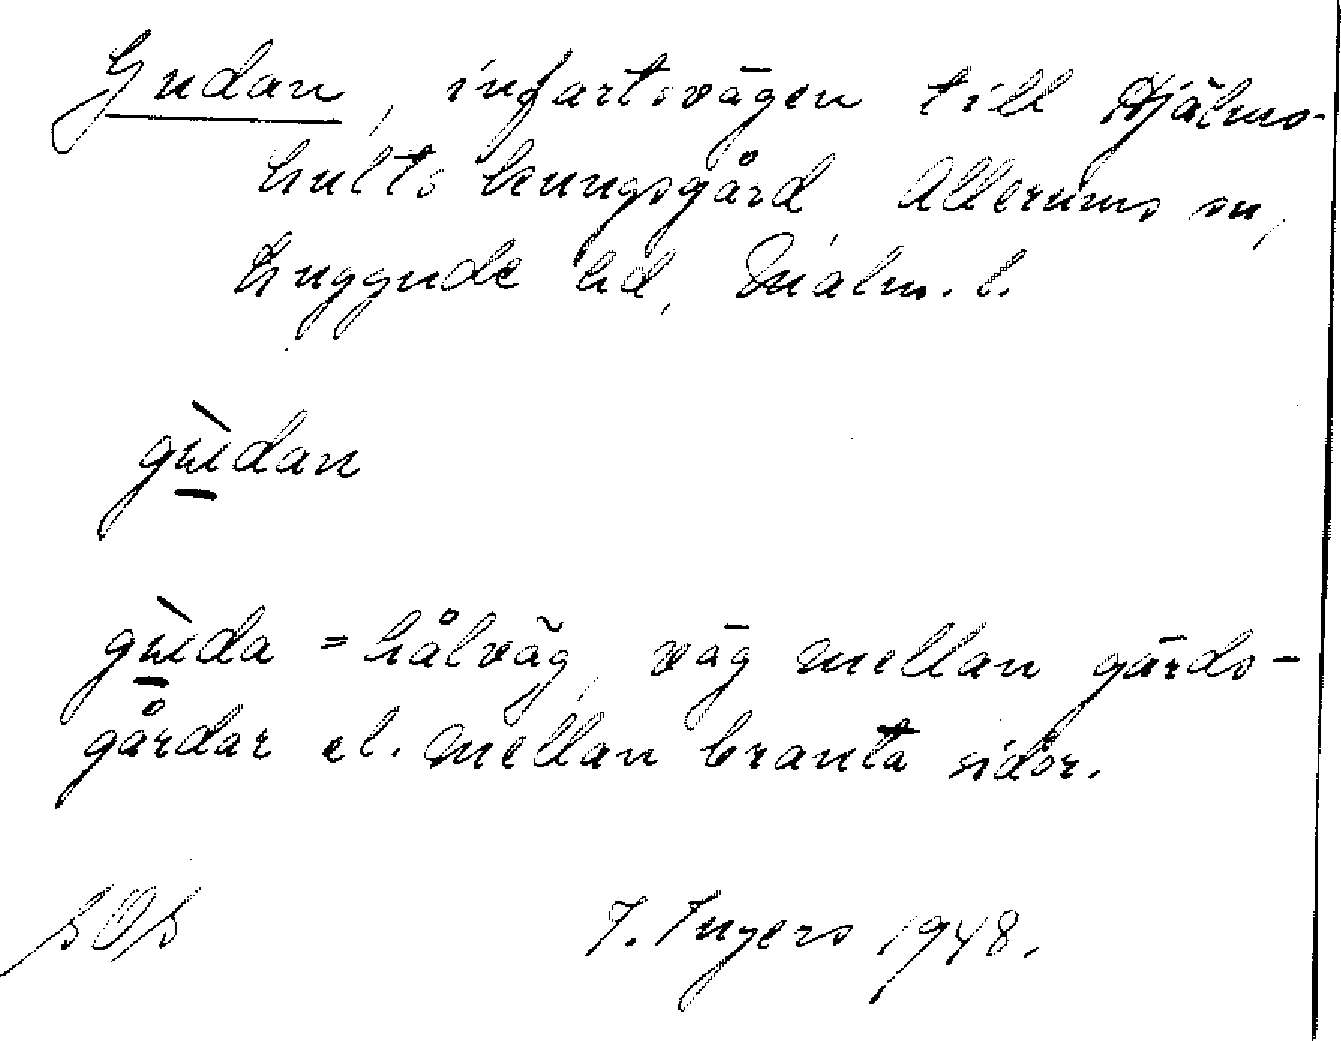 Gudan, infartsvägen till Hjälms-
hults kungsgård Allerums sn,
Luggude hd, Malm. l.
gù̠dan
gù̠da = hålväg, väg mellan gärds-
gårdar el. mellan branta sidor.
I. Ingers 1948.